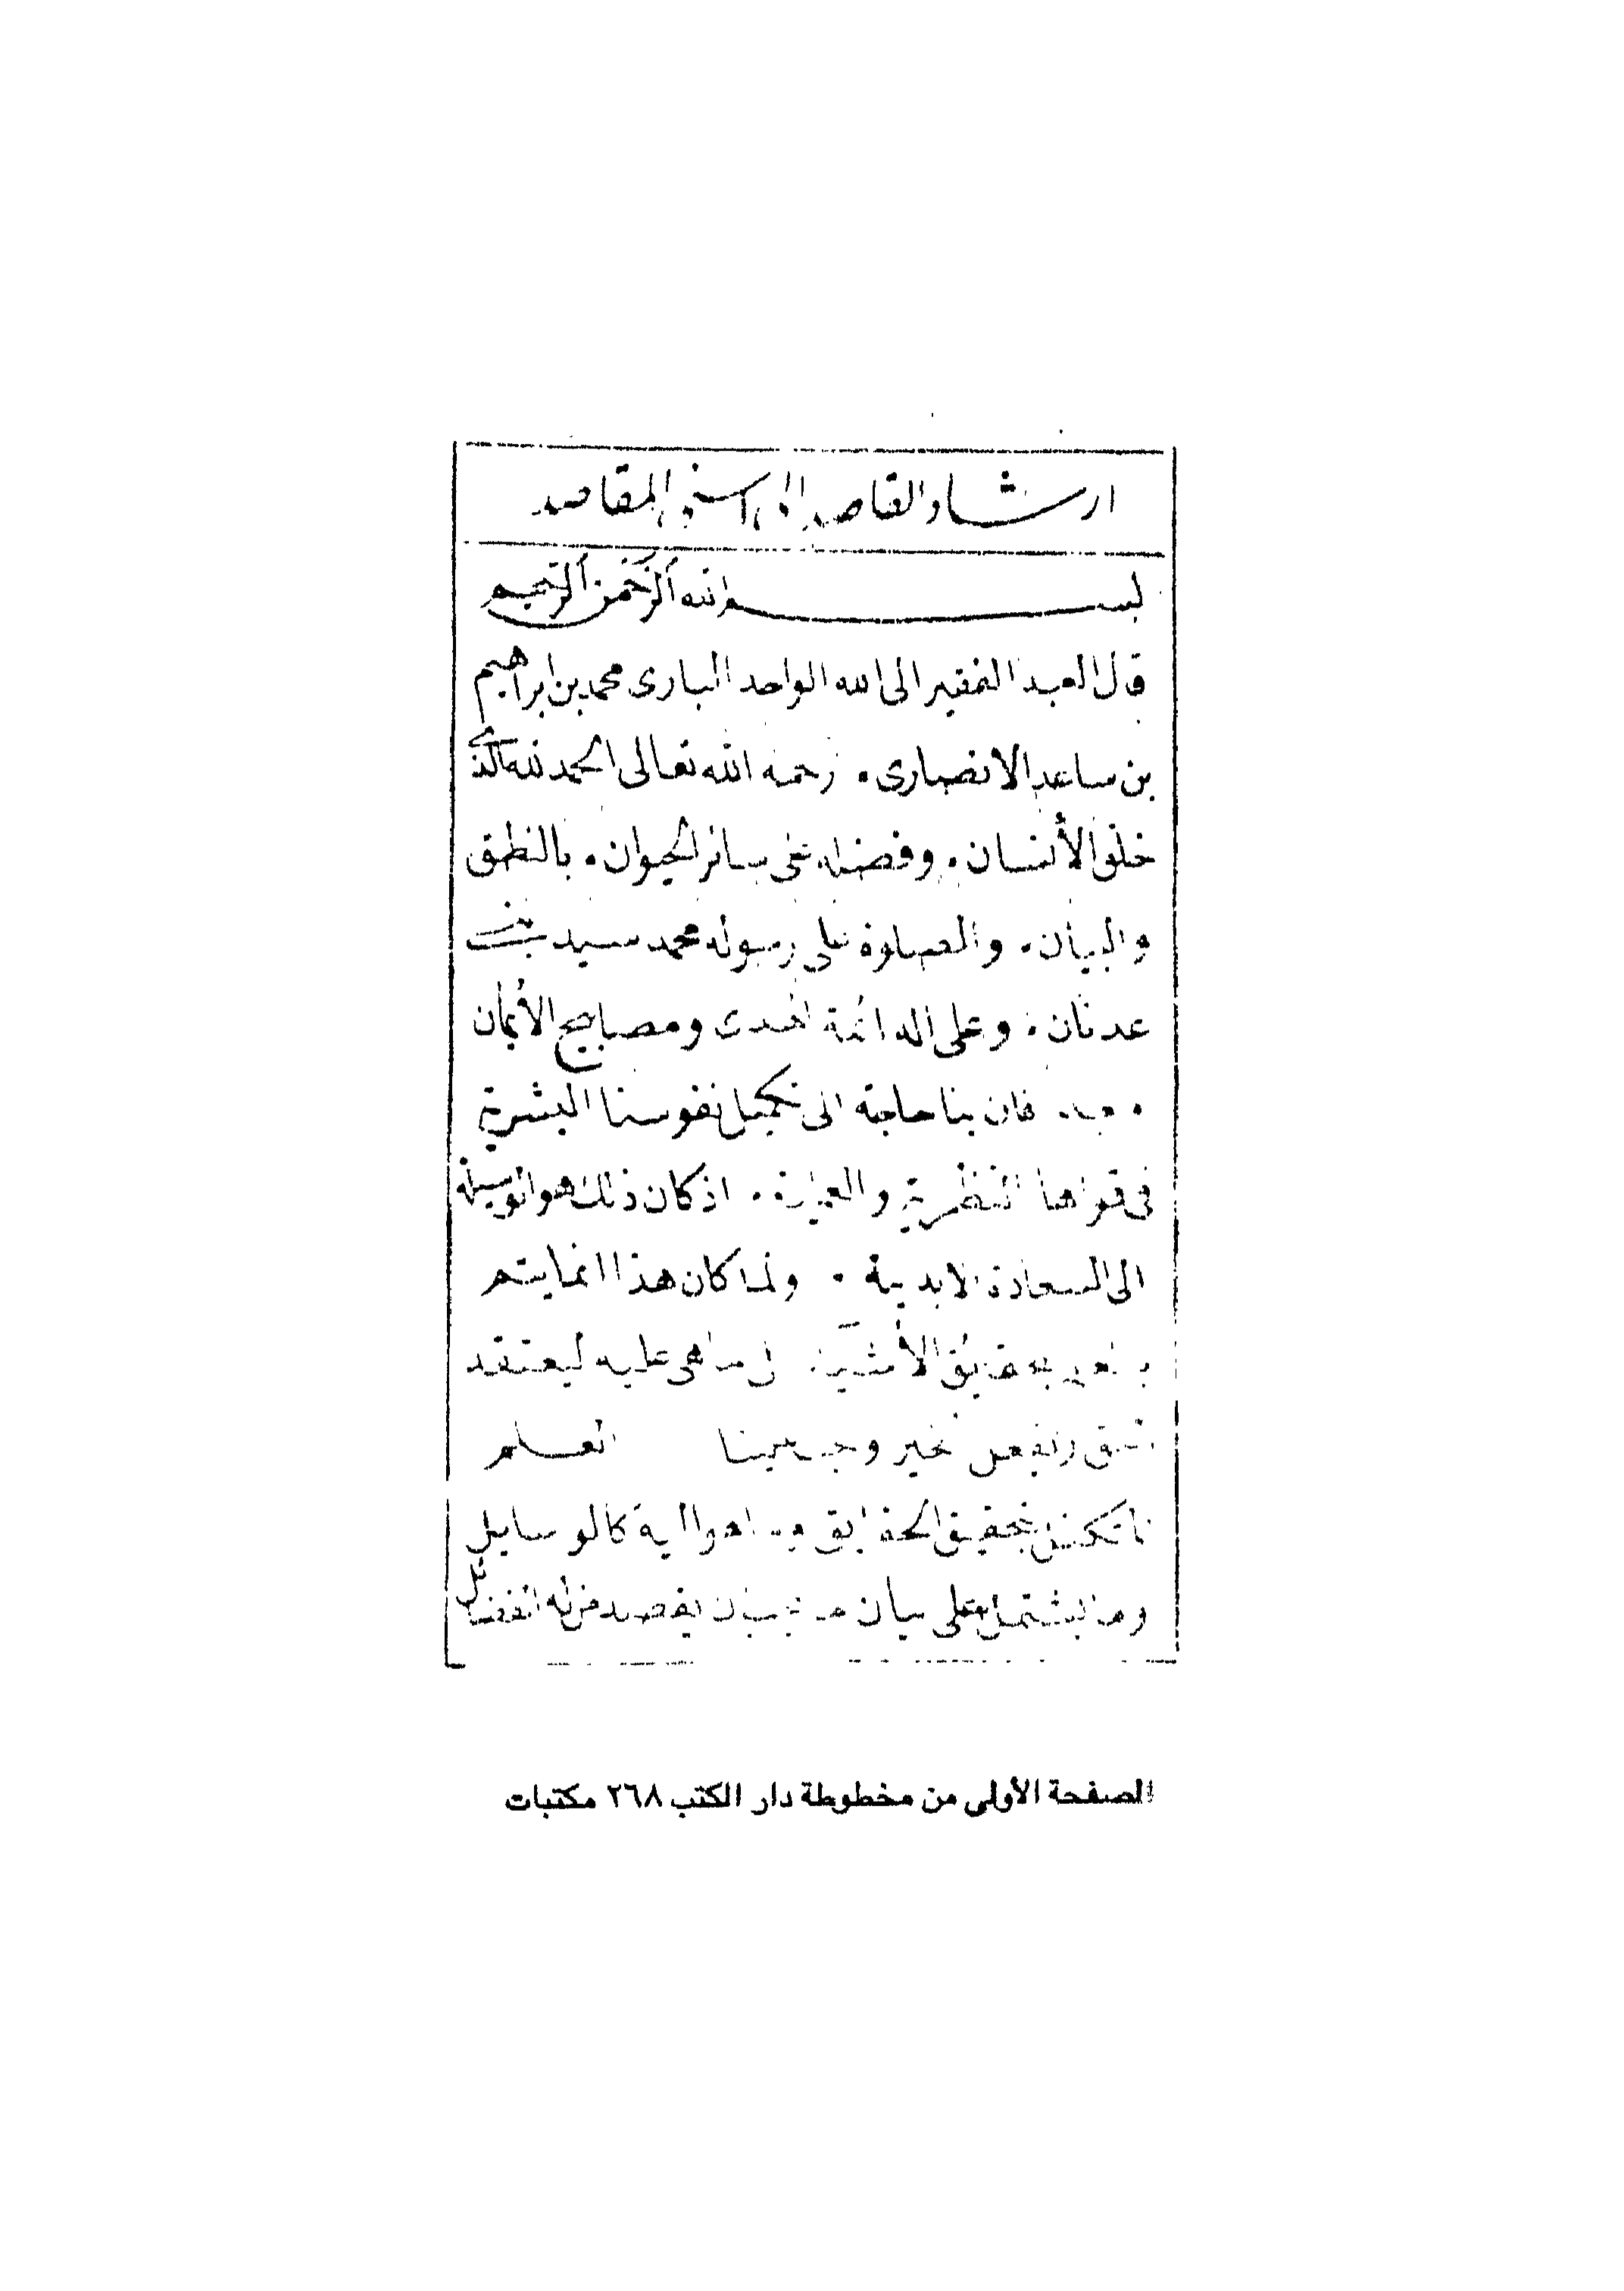 ارشاد القاصد الى اسنى المقاصد
بسم الله الرحمن الرحيم
قال العبد الفقير الى الله الواحد البارى محمد بن ابراهيم
بن ساعد الانصارى . رحمه الله تعالى الحمد لله الذى
خلق الأنسان . وفضله على سائر الحيوان . بالنطق
والبيان . والصلوة على رسوله محمد سيد بنى
عدنان . وعلى اله ائمة الهدى ومصابيح الأيمان
وبعد . فان بنا حاجة الى تكميل نفوسنا البشرية
فى قواها النظرية والعملية . اذ كان ذلك هو الوسيلة
الى السعادة الابدية . ولما كان هذا انما يتم
حقايق الأشيآء هى عليه ليعتقد
ويفعل الخير وجب علينا العلم
بتحقيق الحقايق وما هو اليه كالوسايل
وما يشتمل على بيان ما يجب ان يقصد من الفضائل
الصفحة الأولى من مخطوطة دار الكتب ٢٦٨ مكتبات